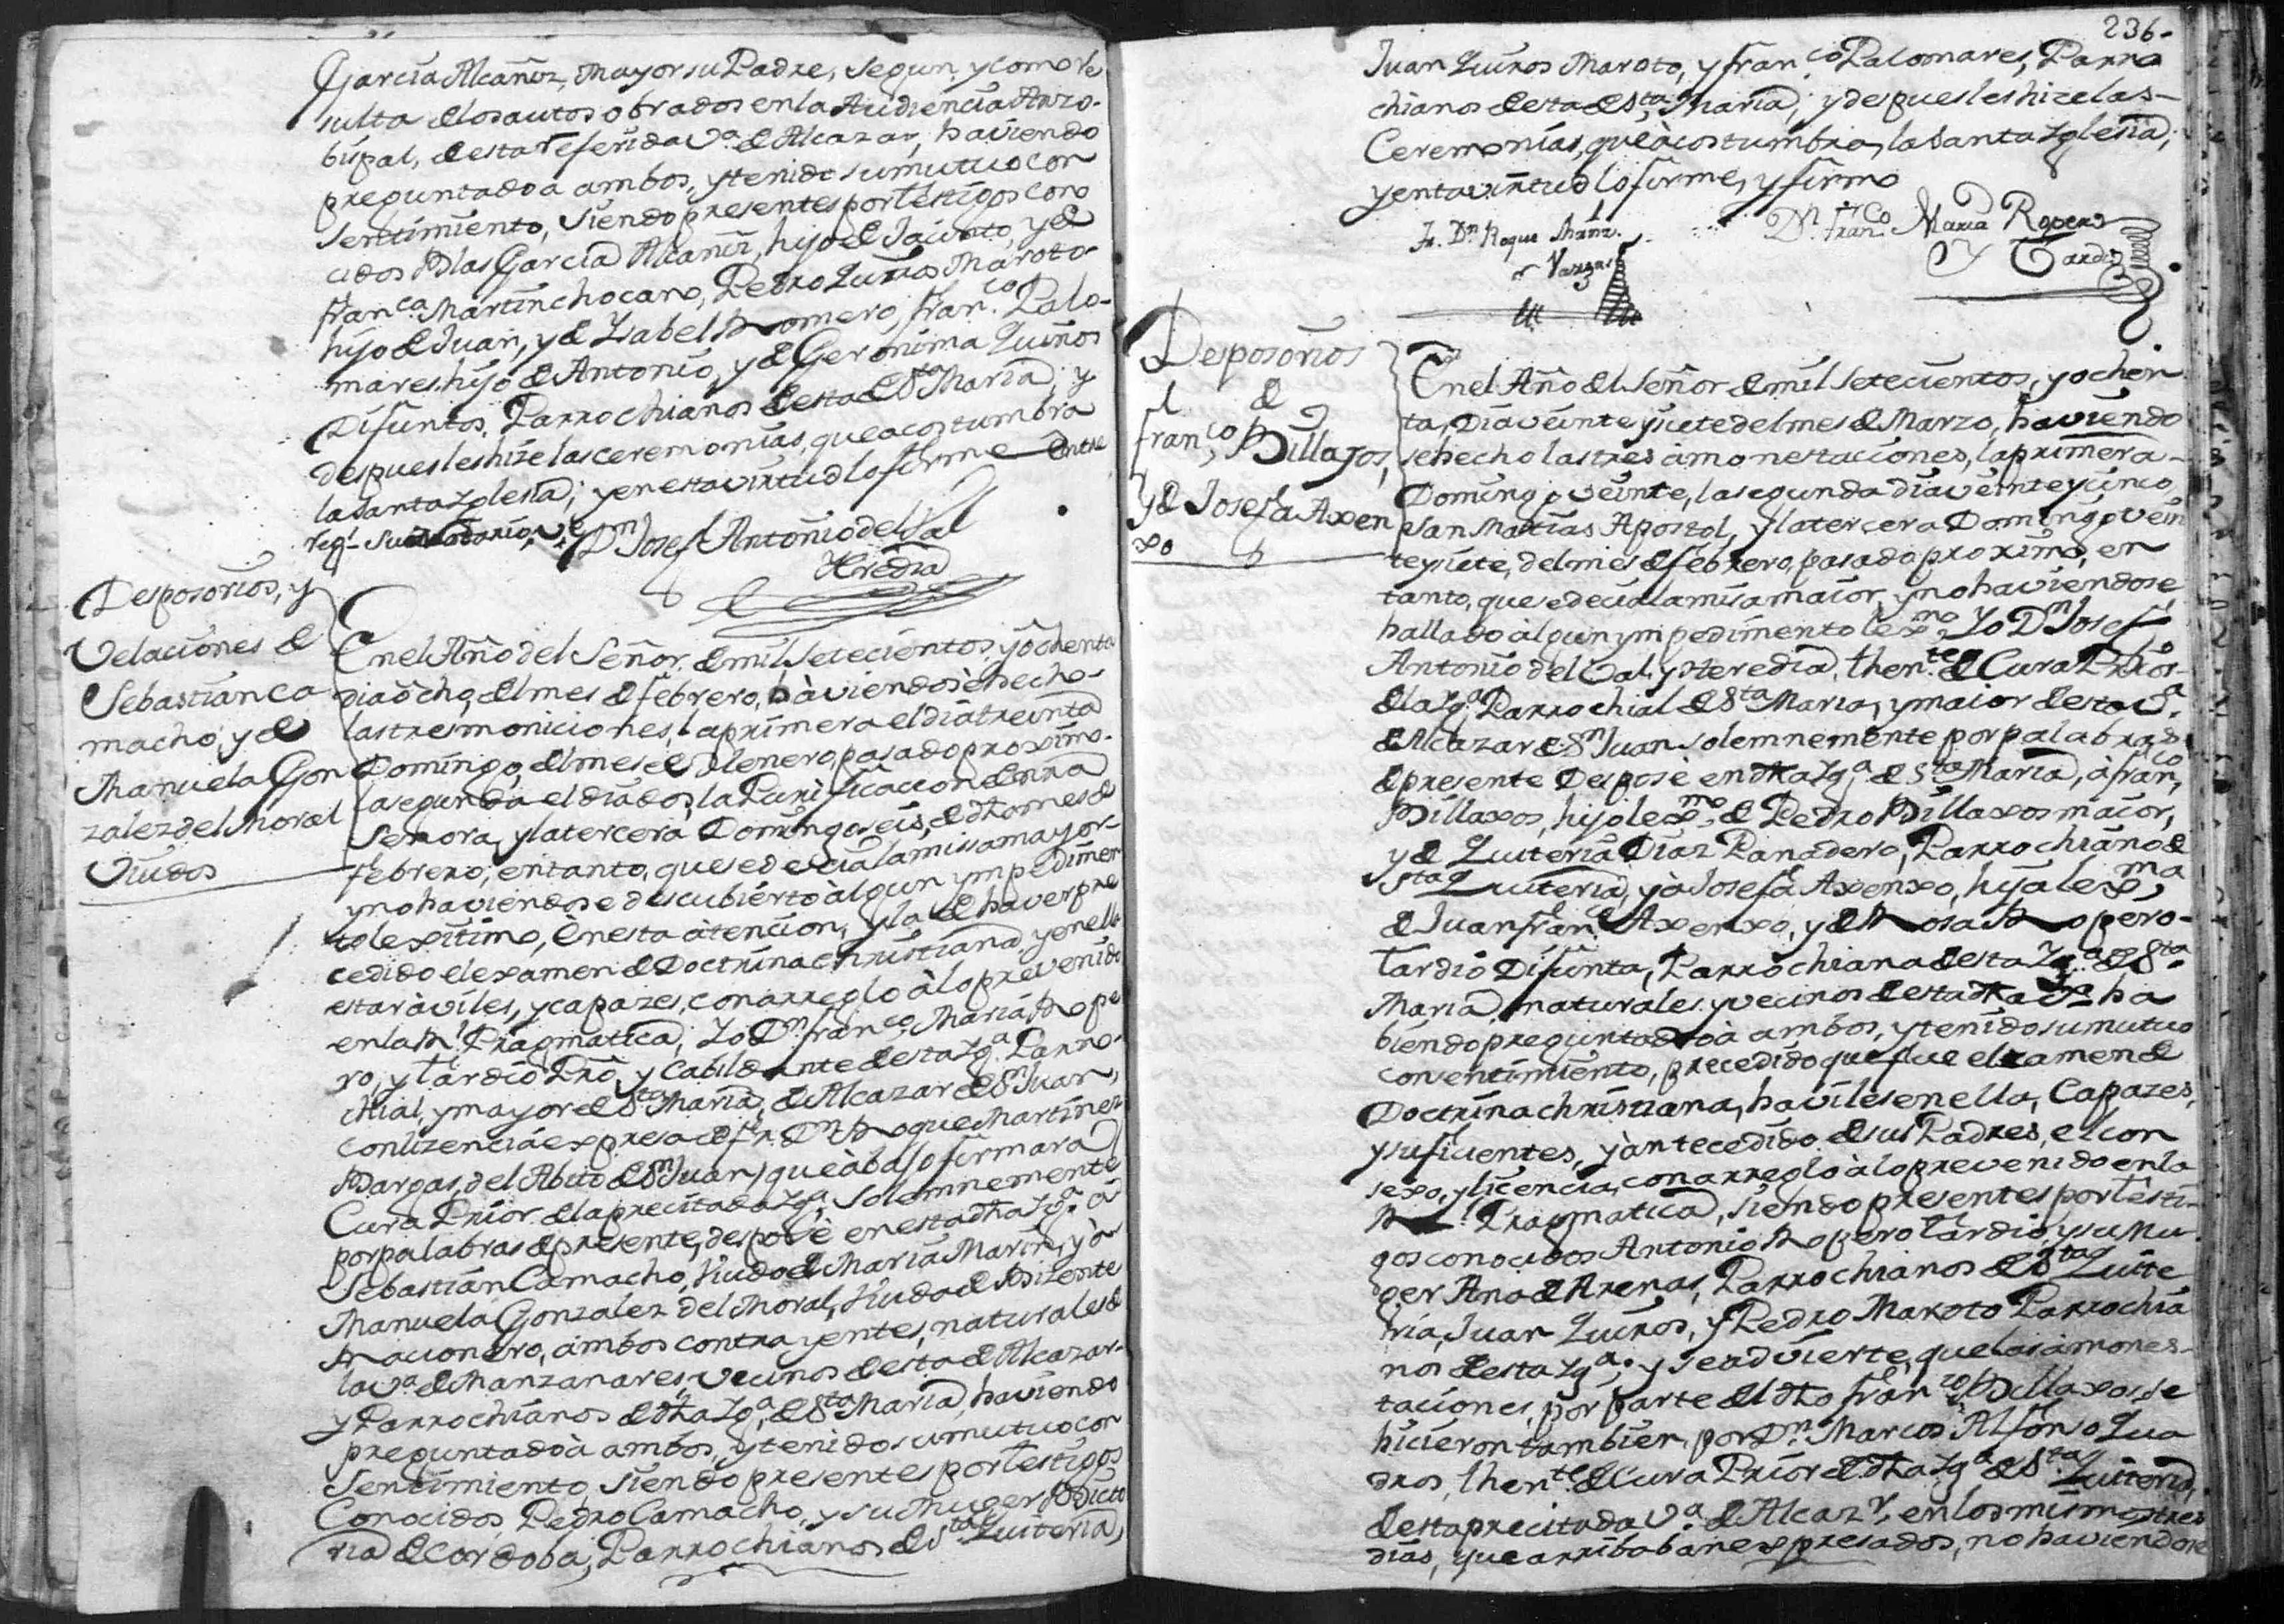 Garcia Alcañiz, Mayor su Padre, segun, y como re
sulta de los autos obrados en la Audiencia Arzo-
bispal, de esta referida Va. de Alcazar, haviendo
preguntado a ambos, y tenido su mutuo con
sentimiento, siendo presentes por testigos cono
cidos Blas Garcia Alcañiz, hijo de Jacinto, y de
Franca. Martin chocano, Pedro Quiros Maroto
hijo de Juan, y de Isabel Romero, Franco. Palo-
mares hijo de Antonio, y de Geronima Quiros
Difuntos, Parrochianos de esta de Sta. Maria, y
despues les hize las ceremonias, que acostumbra
la Santa Iglesia; y en esta virtud lo firme Entre
regl.
Dn. Josef Antonio del Val
Heredia
Desposorios, y
Velaciones de
Sebastian Ca
macho, y de
Manuela Gon
zalez del Moral
Viudos
En el Año del Señor de mil setecientos, y ochenta
dia ocho, del mes de febrero, haviendose hecho
las tres moniciones, la primera el dia treinta
Domingo, del mes de Henero, pasado proximo.
la segunda el dia dos, la Purificacion de nra
Señora, y la tercera Domingo seis, de dho mes de
febrero, en tanto, que se decia la missa mayor
y no haviendose descubierto algun ympedimen
to lexitimo, En esta atencion, y la de haver pre
cedido el examen de Doctrina christiana, y en ella
estar aviles, y capazes, con arreglo à lo prevenido
en la Rl. Pragmatica, Yo Dn. Franco. Maria Rope
ro, y Tardio Pro. y Cabildante de esta Yga. Parro-
chial, y mayor de Sta. Maria, de Alcazar de Sn. Juan,
con lizencia expresa de fr. Dn. Roque Martinez
Bargas, del Abito de Sn. Juan, que abajo firmara
Cura Prior de la precitada Yga. solemnemente
por palabras de presente, despose en esta dha Yga. a
Sebastian Camacho, Viudo de Maria Marin, y à
Manuela Gonzalez del Moral, Viuda de Bizente
Racionero, ambos contrayentes, naturales de
la Va. de Manzanares, vecinos de esta de Alcazar
y Parrochianos de dha Yga. de Sta. Maria, haviendo
preguntado à ambos, y tenido su mutuo con
sentimiento, siendo presentes por testigos
Conocidos Pedro Camacho, y su Muger Victo
ria de Cordoba, Parrochianos de Sta. Quiteria,
236.
Juan Quiros Maroto, y Franco. Palomares, Parro
chianos de esta de Sta. Maria; y despues les hize las
Ceremonias, que acostumbra, la Santa Iglesia;
y en ta virtud lo firme, y firmo
Fr. Dn. Roque Marnz.
Vargas
Dn. Franco. Maria Ropero
y Tardio
Desposorios
de
Franco. Billajos,
y de Josefa Axen
xo
En el Año del Señor de mil setecientos, y ochen
ta, Dia veinte y siete del mes de Marzo, haviendo
se hecho las tres amonestaciones, la primera
Domingo veinte, la segunda dia veinte y cinco
San Matias Apostol, y la tercera Domingo vein
te y siete, del mes de febrero, pasado proximo, en
tanto, que se decia la misa maior, y no haviendose
hallado algun ympedimento lexmo. Yo Dn. Josef
Antonio del Val, y Heredia, thente. de Cura Prior
de la Yga. Parrochial de Sta. Maria, y maior de esta Va.
de Alcazar de Sn. Juan solemnemente por palabras
de presente Despose en dha Yga. de Sta. Maria, à Franco,
Billaxos, hijo lexmo. de Pedro Billaxos maior,
y de Quiteria Diaz Panadero, Parrochiano de
Sta. Quiteria, y à Josefa Axenxo, hija lexma,
de Juan Franco. Axenxo, y de Rosa Ropero
Tardio Difunta, Parrochiana de esta Yga. de Sta.
Maria, naturales, y vecinos de esta dha Va. ha
biendo preguntado à ambos, y tenido su mutuo
consentimiento, precedido que fue el examen de
Doctrina christiana, haviles en ella, Capazes,
y suficientes, y antecedido de sus Padres, el con
sexo, y licencia, con arreglo à lo prevenido en la
Rl. Pragmatica, siendo presentes por testi-
gos conocidos Antonio Ropero Tardio, y su Mu
ger Ana de Arenas, Parrochianos de Sta. Quite
ria, Juan Quiros, y Pedro Maroto Parrochia
nos de esta Yga.; y se advierte, que las amones-
taciones, por parte del dho Franco. Billaxos se
hicieron tambien, por Dn. Marcos Alfonso Qua
dros, thente. de Cura Prior de dha Yga. de Sta. Quiteria,
de esta precitada Va. de Alcazr. en los mismos tres
dias, que arriba ban expresados, no haviendose